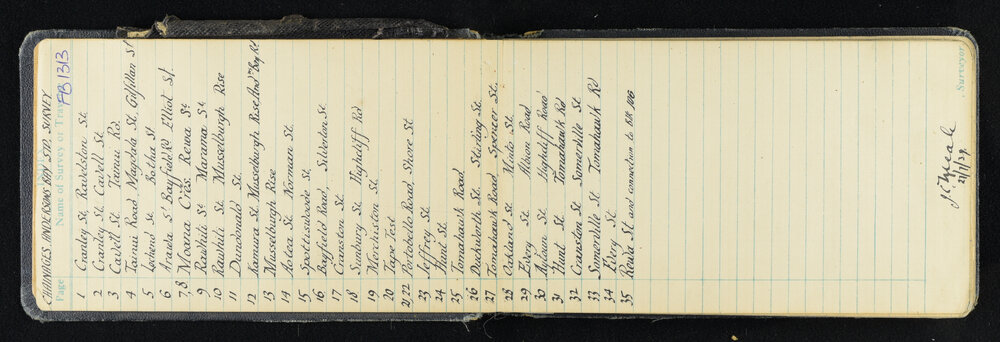 CHAINAGES ANDERSONS BAY STD. SURVEY
FB 1313
Page Name of Survey or
1 Cranley St. Ravelston St.
2 Cranley St. Cavell St.
3 Cavell St. Tainui Rd.
4 Tainui Road Magdala St. Gilfillan St
5 Lochend St. Botha St.
6 Arawa St Bayfield Rd Elliot St.
7,8 Moana Cres. Rewa St
9 Rawhiti St Marama St
10 Rawhiti St. Musselburgh Rise
11 Dundonald St.
12 Kamura St. Musselburgh Rise And Bay Rd
13 Musselburgh Rise
14 Aotea St. Norman St.
15 Spottiswoode St.
16 Bayfield Road, Silverton St.
17 Cranston St.
18 Sunbury St. Highcliff Rd
19 Merchiston St.
20 Tape Test
21,22 Portobello Road Shore St.
23 Jeffrey St.
24 Hunt St.
25 Tomahawk Road
26 Duckworth St. Stirling St.
27 Tomahawk Road Spencer St.
28 Oakland St. Minto St.
29 Every St. Albion Road
30 Hudson St. Highcliff Road
31 Hunt St. Tomahawk Rd
32 Cranston St. Somerville St
33 Somerville St Tomahawk Rd
34 Every St.
35 Rewa St and connection to
Surveyor